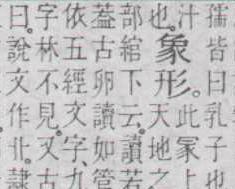 孺皆曰乳子也
汁
也。
象形。
此冡上
天地之
部綰下云。讀若
葢古卵讀如管
依五經文字。九
字林不見。又古
曰。說文作卝。隸